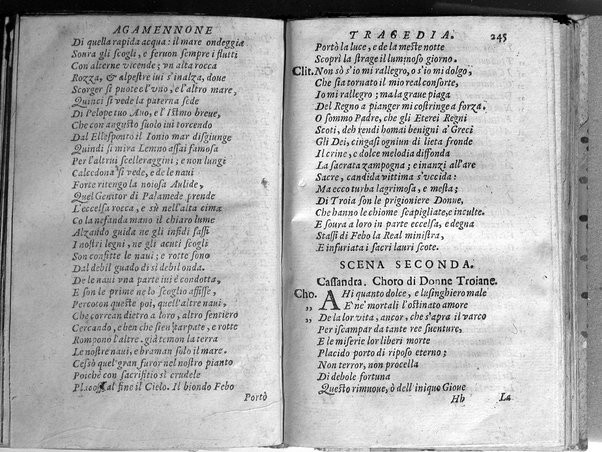 AGAMENNONE
Di quella rapida acqua: il mare ondeggia
Soura gli scogli, e feruon sempre i flutti
Con alterne vicende; vn alta rocca
Rozza, & alpestre iui s'inalza, doue
Scorger si puote l'vno, e l'altro mare,
Quinci si vede la paterna sede
Di Pelope tuo Auo, e l'Istmo breue,
Che con angusto suolo iui torcendo
Dal Ellesponto il Ionio mar disgiunge
Quindi si mira Lemno assai famosa
Per l'altrui scelleraggini; e non lungi
Calcedona si vede, e de le naui
Forte ritegno la noiosa Aulide,
Quel Genitor di Palamede prende
L'eccelsa rocca, e sù nell'alta cima
Co la nefanda mano il chiaro lume
Alzando guida ne gli infidi sassi
I nostri legni, ne gli acuti scogli
Son confitte le naui; e rotte sono
Dal debil guado di sì debil onda.
De le naui vna parte iui è condotta,
E son le prime ne lo scoglio affisse,
Percoton queste poi, quell'altre naui,
Che correan dietro a loro, altro sentiero
Cercando, e ben che sien sarpate, e rotte
Rompono l'altre. già temon la terra
Le nostre naui, e braman solo il mare.
Cessò quel gran furor nel nostro pianto
Poiche con sacrifitio sì crudele
Placossi al fine il Cielo. Il biondo Febo
Portò
TRAGEDIA. 245
Portò la luce, e de la meste notte
Scoprì la strage il luminoso giorno.
Clit. Non sò s'io mi rallegro, o s'io mi dolgo,
Che sia tornato il mio real consorte,
Io mi rallegro; ma la graue piaga
Del Regno a pianger mi costringe a forza.
O sommo Padre, che gli Eterei Regni
Scoti, deh rendi homai benigni a' Greci
Gli Dei, cingasi ogniun di lieta fronde
Il crine, e dolce melodia diffonda
La sacrata zampogna; e inanzi all'are
Sacre, candida vittima s'vccida:
Ma ecco turba lagrimosa, e mesta;
Di Troia son le prigioniere Donne,
Che hanno le chiome scapigliate, e inculte.
E soura a loro in parte eccelsa, e degna
Stassi di Febo la Real ministra,
E infuriata i sacri lauri scote.
SCENA SECONDA.
Cassandra. Choro di Donne Troiane.
Cho. AHi quanto dolce, e lusinghiero male
„ E' ne' mortali l'ostinato amore
„ De la lor vita, ancor, che s'apra il varco
Per iscampar da tante ree suenture,
E le miserie lor liberi morte
Placido porto di riposo eterno;
Non terror, non procella
Di debole fortuna
Questo rimuoue, ò dell'iniquo Gioue
Hh La